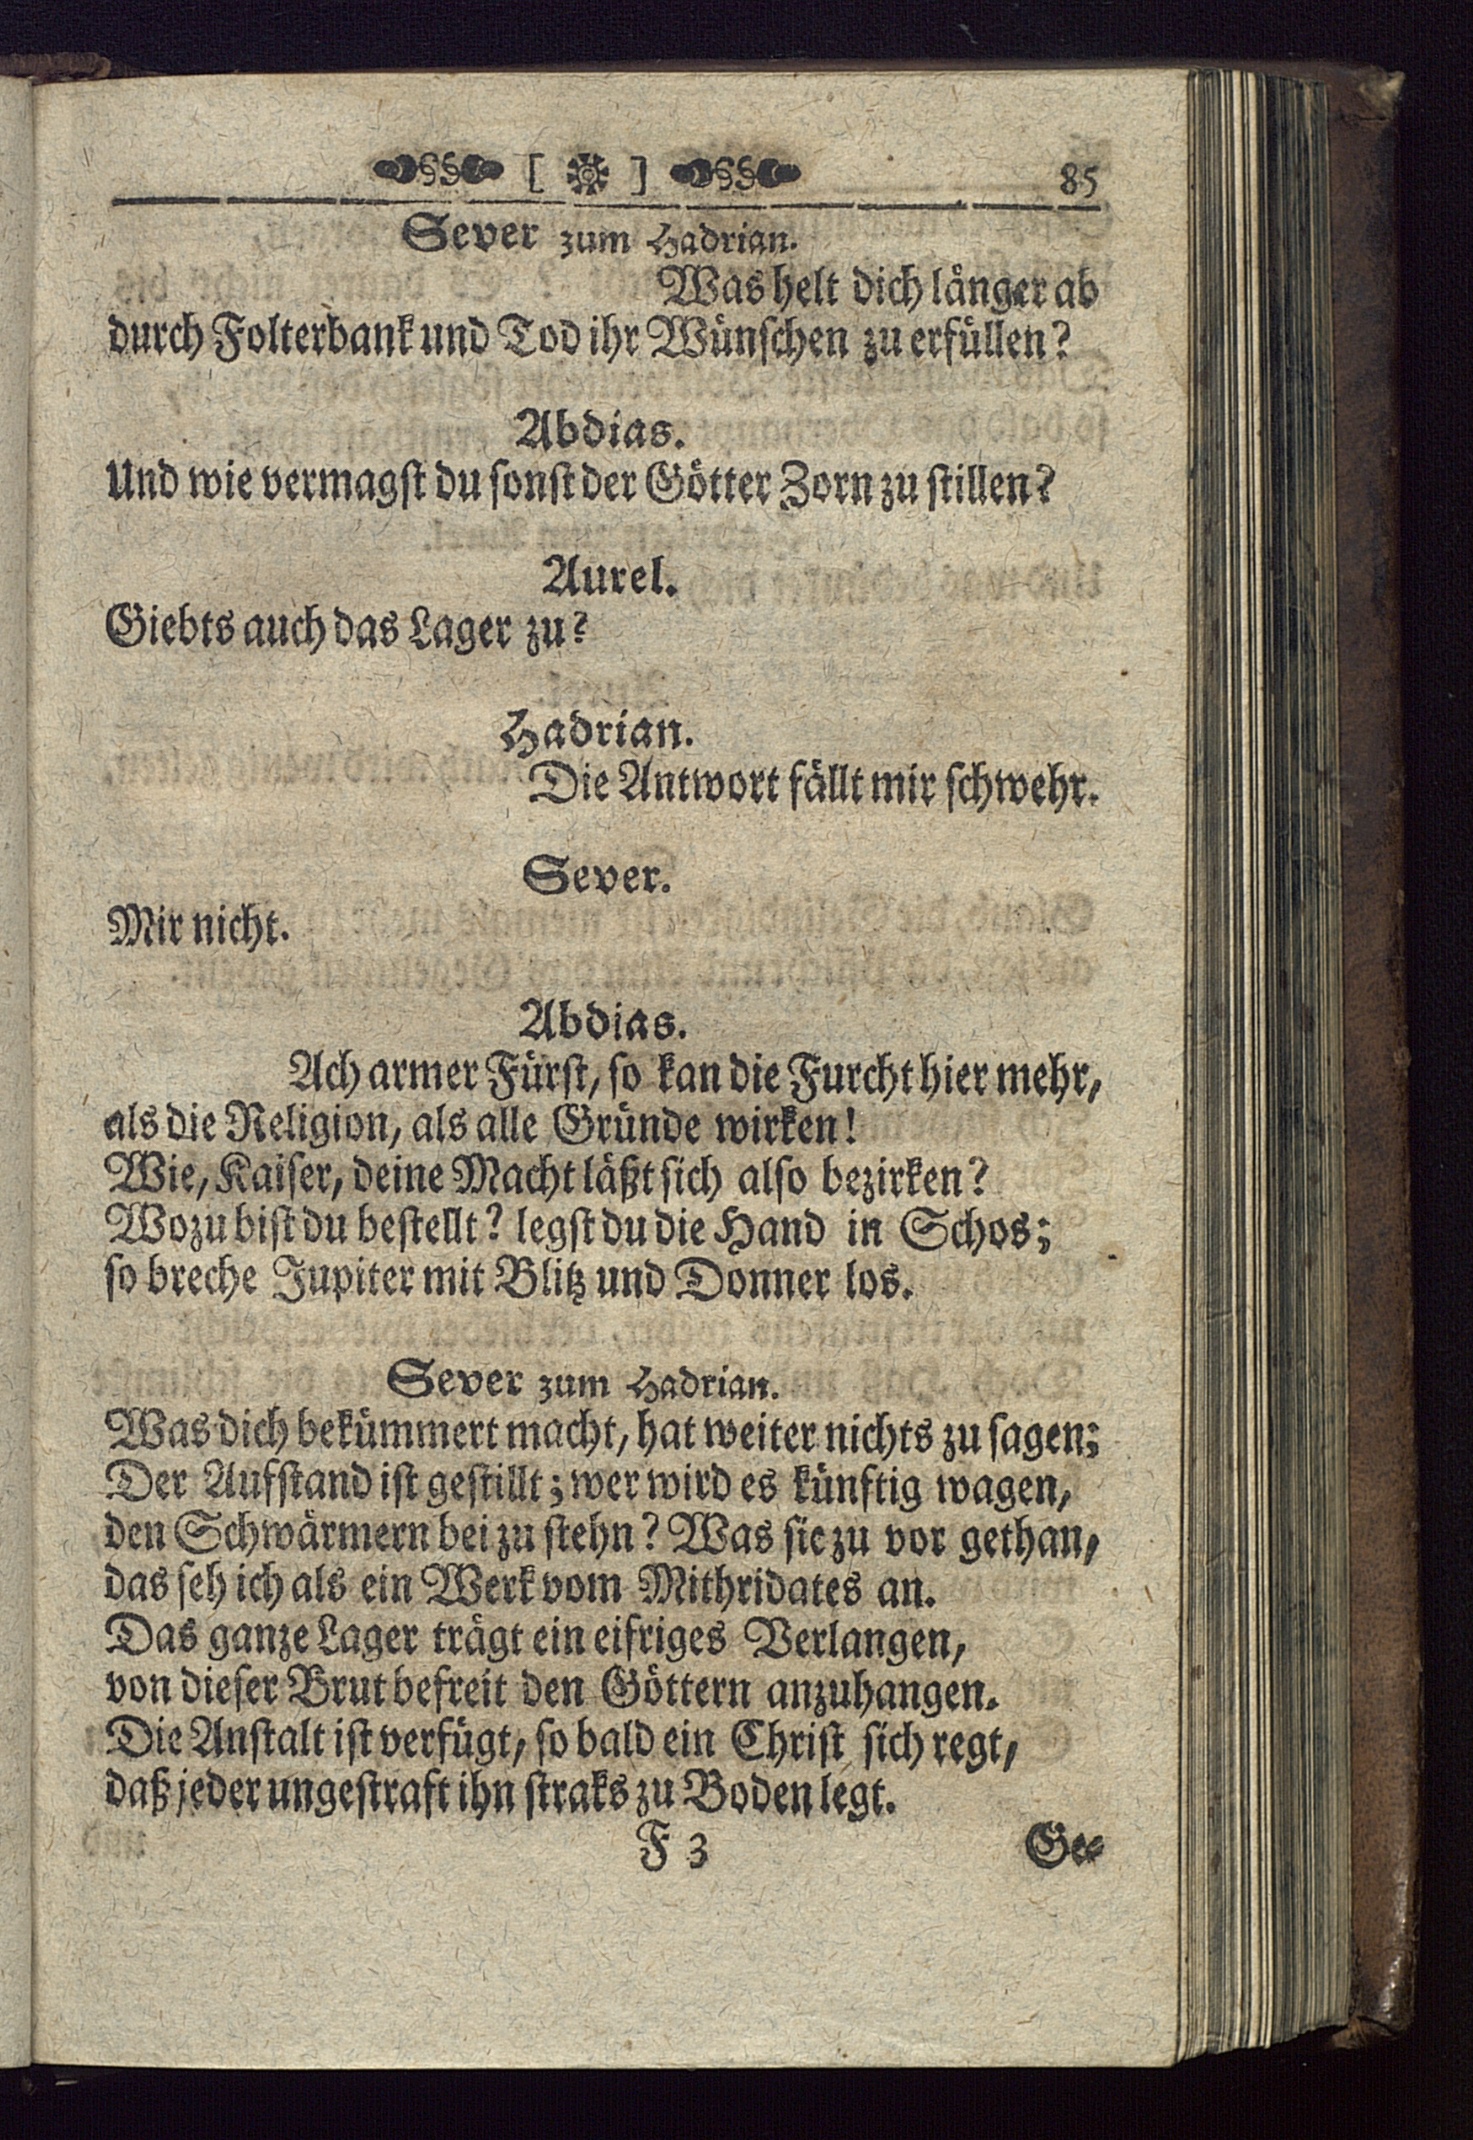 §§ [ ] §§ 85
Sever zum Hadrian.
Was helt dich länger ab
durch Folterbank und Tod ihr Wünschen zu erfüllen?
Abdias.
Und wie vermagst du sonst der Götter Zorn zu stillen?
Aurel.
Giebts auch das Lager zu?
Hadrian.
Die Antwort fällt mir schwehr.
Sever.
Mir nicht.
Abdias.
Ach armer Fürst, so kan die Furcht hier mehr,
als die Religion, als alle Gründe wirken!
Wie, Kaiser, deine Macht läßt sich also bezirken?
Wozu bist du bestellt? legst du die Hand in Schos;
so breche Jupiter mit Blitz und Donner los.
Sever zum Hadrian.
Was dich bekümmert macht, hat weiter nichts zu sagen;
Der Aufstand ist gestillt; wer wird es künftig wagen,
den Schwärmern bei zu stehn? Was sie zu vor gethan,
das seh ich als ein Werk vom Mithridates an.
Das ganze Lager trägt ein eifriges Verlangen,
von dieser Brut befreit den Göttern anzuhangen.
Die Anstalt ist verfügt, so bald ein Christ sich regt,
daß jeder ungestraft ihn straks zu Boden legt.
F 3 Ge-